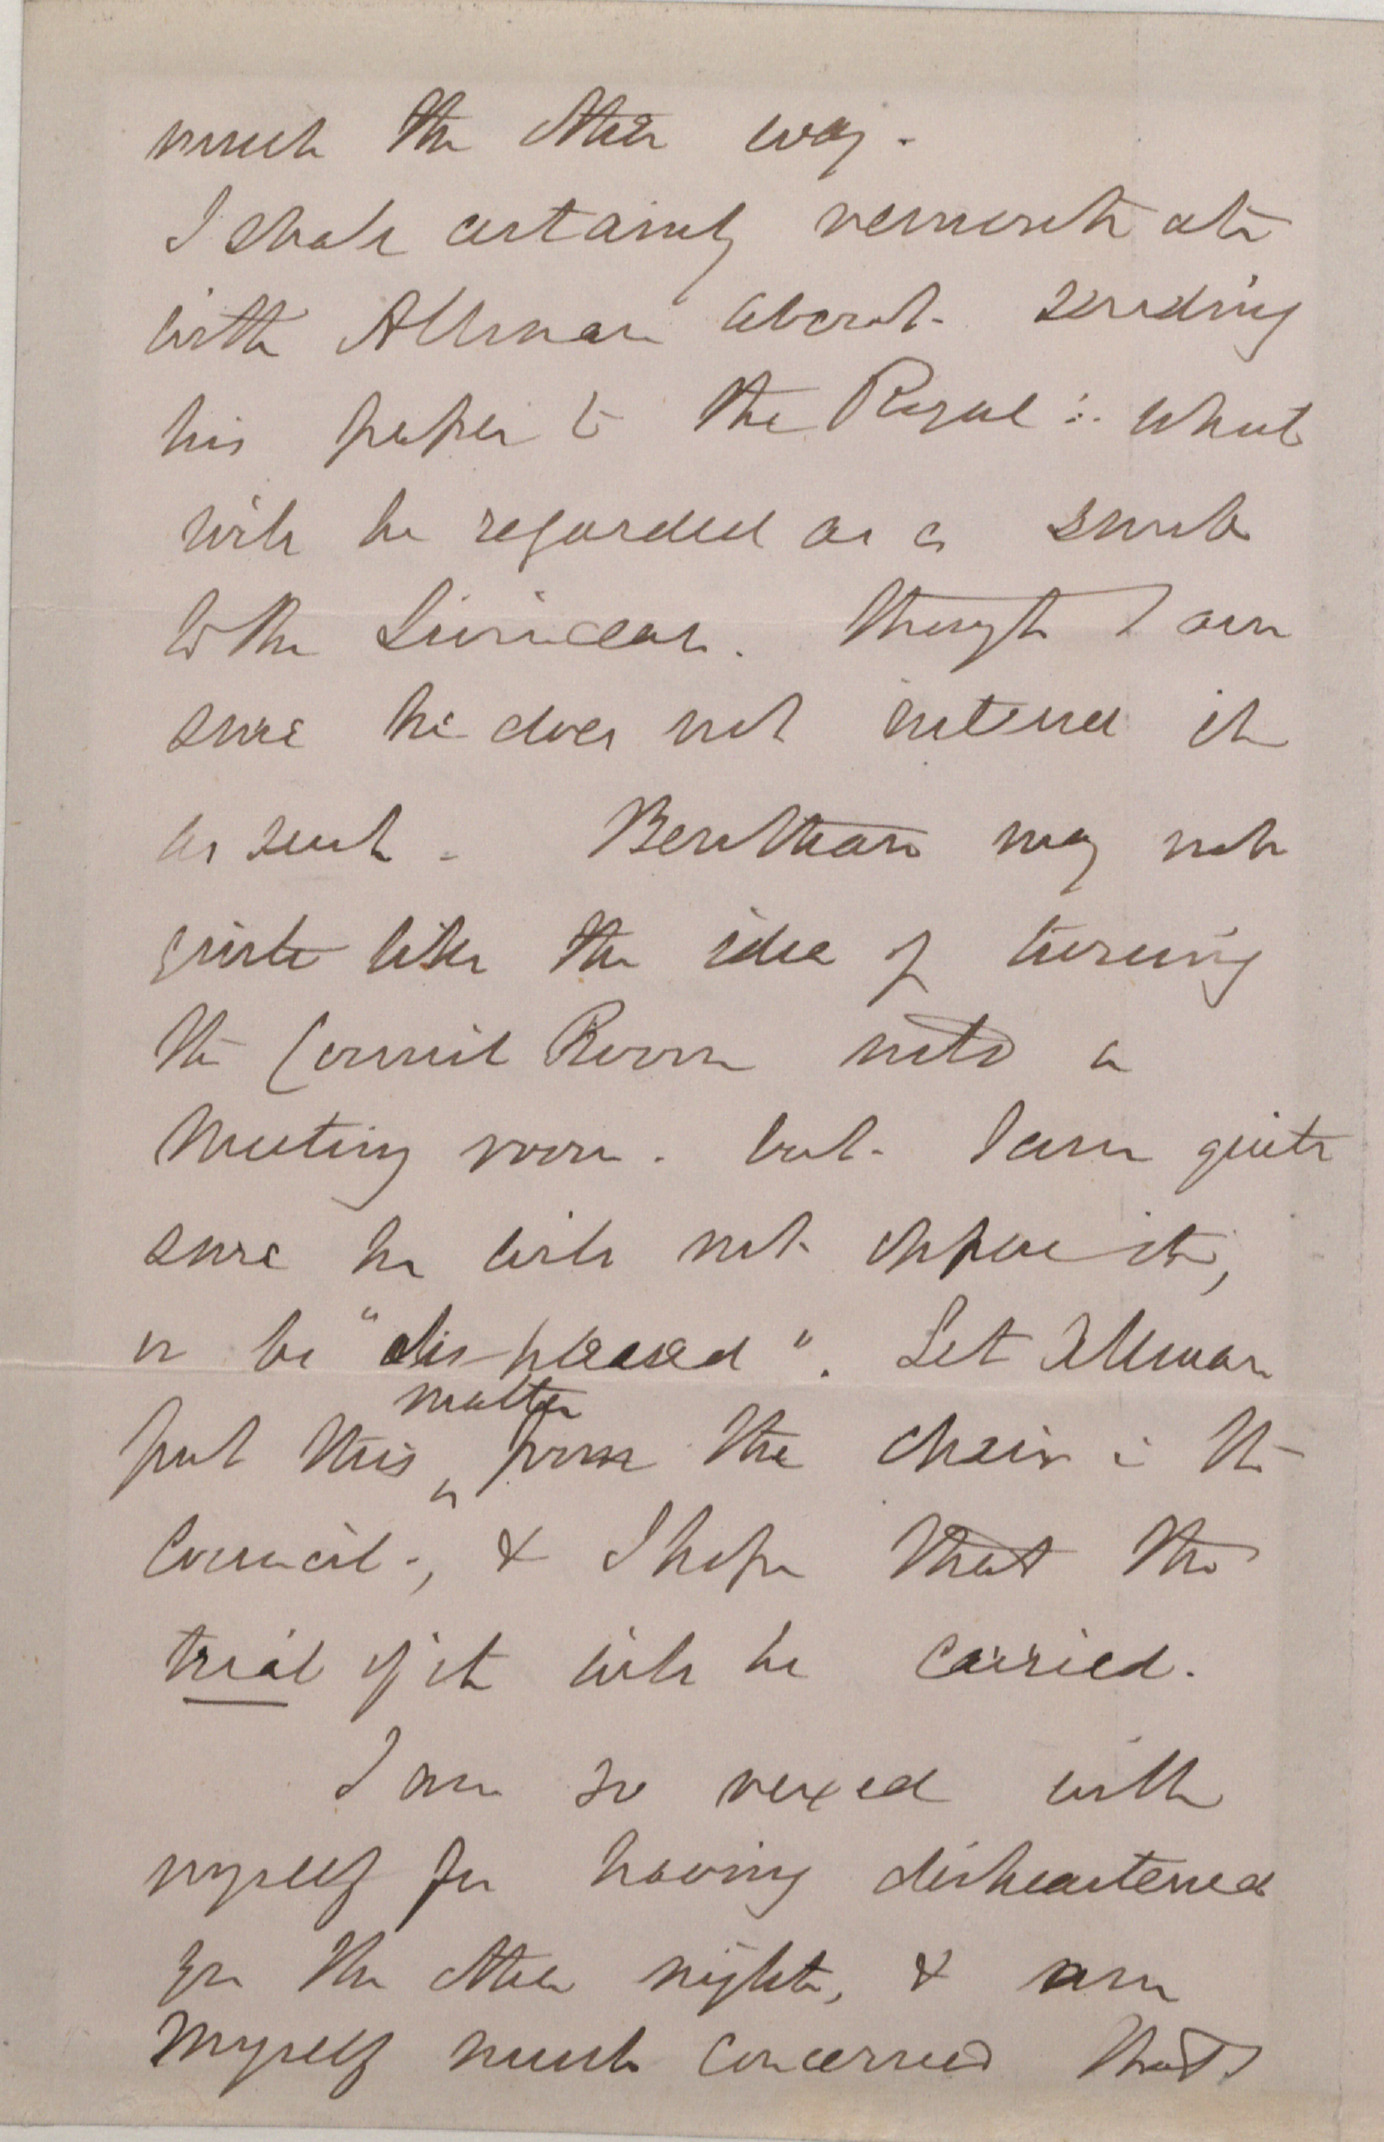 much the other way.
I shall certainly remonstrate
with Allman about sending
his paper to the Royal: what
will be regarded as a snub
to the Linnean. though I am
sure he does not intend it
as such. Bentham may not
quite like the idea of turning
the Council Room into a
Meeting room. but I am quite
sure he will not oppose it,
or be "dis-pleased". Let Allman
put this matter from the chair in the
Council, & I hope that the
trial of it will be carried.
I am so vexed with
myself for having disheartened
you the other night, & am
myself much concerned that